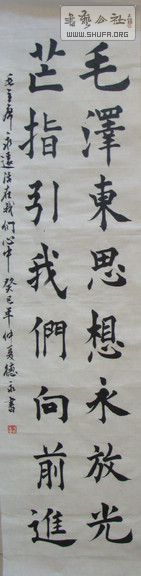 毛澤東思想永放光
芒指引我們向前進
毛主席永遠活在我們心中 癸巳年仲夏德永書
書藝公社
WWW.SHUFA.ORG